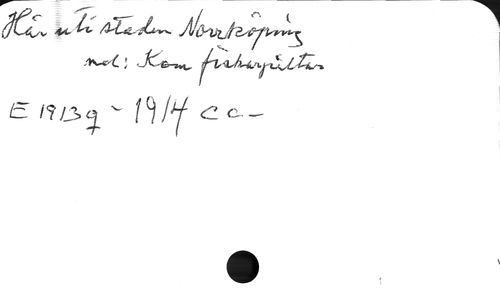 Här uti staden Norrköping
mel: Kom fiskargiltar
E 1913 q - 1914 c a -